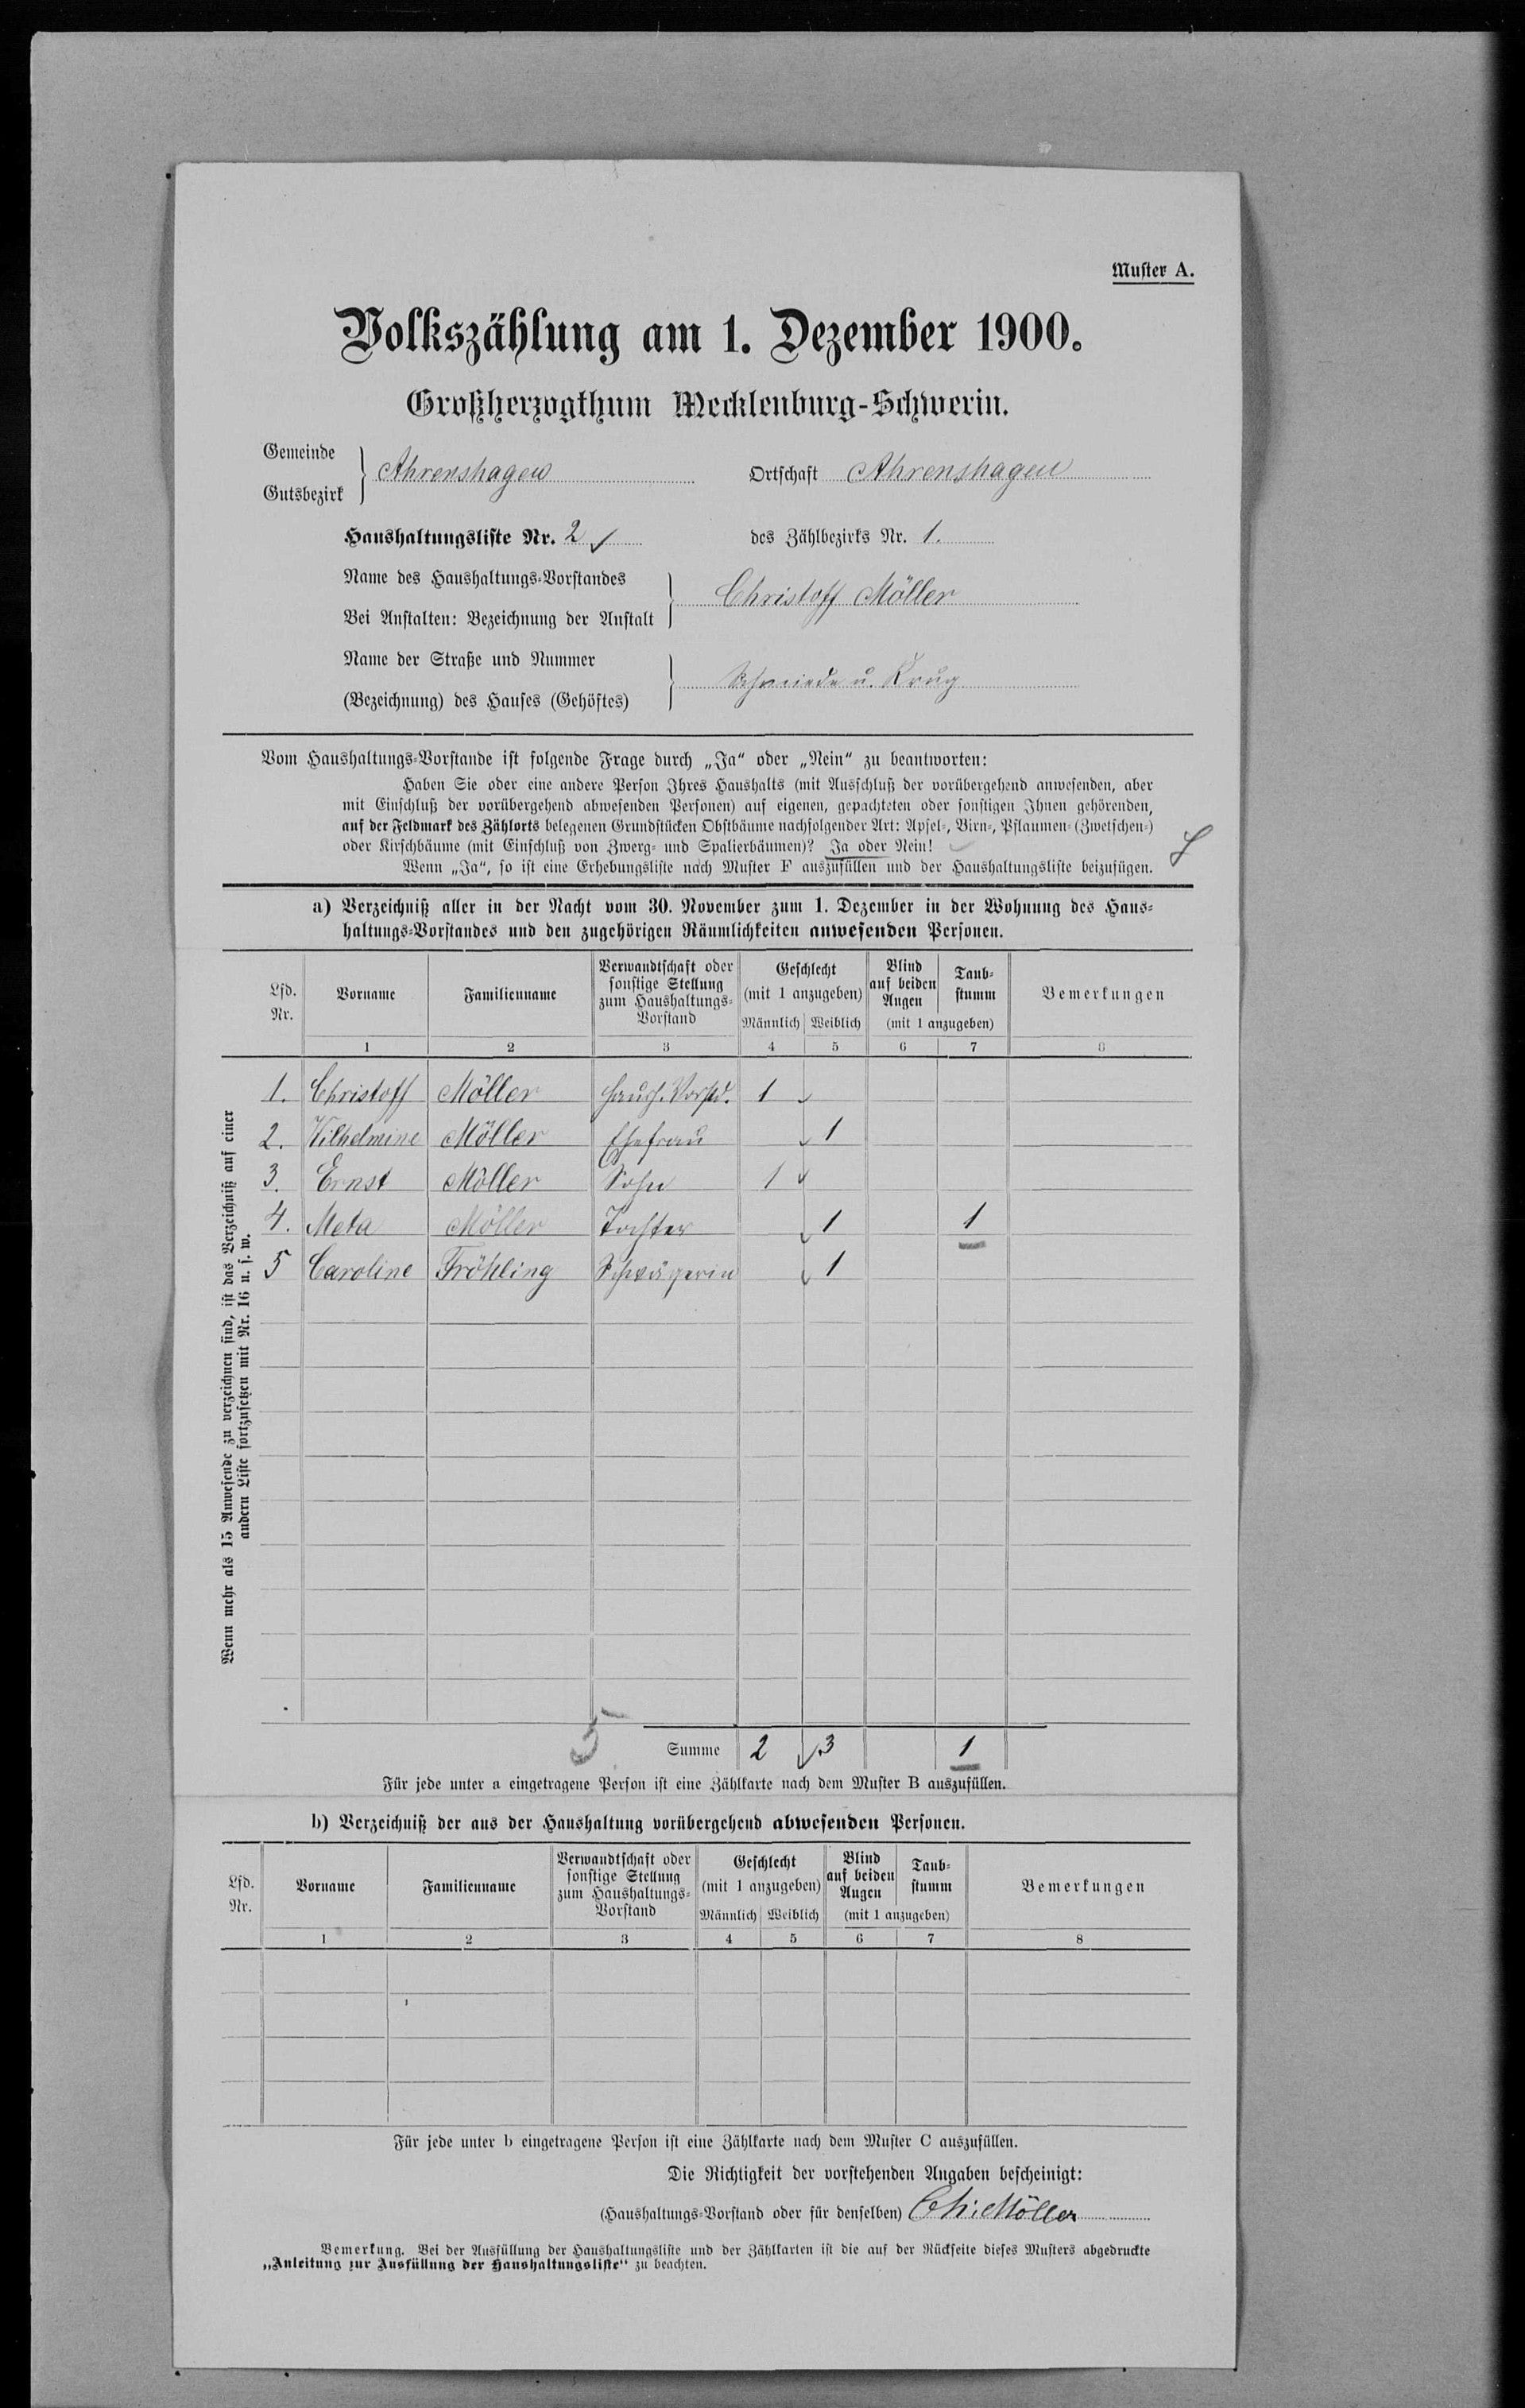 Muster A.
Volkszählung am 1. Dezember 1900.
Großherzogthum Mecklenburg-Schwerin.
Gemeinde
Gutsbezirk
Ahrenshagen
Ortschaft Ahrenshagen
Haushaltungsliste Nr. 2
des Zählbezirks Nr. 1.
Name des Haushaltungs-Vorstandes
Bei Anstalten: Bezeichnung der Anstalt
Christoff Möller
Name der Straße und Nummer
(Bezeichnung) des Hauses (Gehöftes)
Schmiede u. Krug
Vom Haushaltungs-Vorstande ist folgende Frage durch „Ja“ oder „Nein“ zu beantworten:
Haben Sie oder eine andere Person Ihres Haushalts (mit Ausschluß der vorübergehend anwesenden, aber
mit Einschluß der vorübergehend abwesenden Personen) auf eigenen, gepachteten oder sonstigen Ihnen gehörenden,
auf der Feldmark des Zählorts belegenen Grundstücken Obstbäume nachfolgender Art: Apfel-, Birn-, Pflaumen- (Zwetschen-)
oder Kirschbäume (mit Einschluß von Zwerg- und Spalierbäumen)? Ja oder Nein!
Wenn „Ja“, so ist eine Erhebungsliste nach Muster F auszufüllen und der Haushaltungsliste beizufügen.
a) Verzeichniß aller in der Nacht vom 30. November zum 1. Dezember in der Wohnung des Haus-
haltungs-Vorstandes und den zugehörigen Räumlichkeiten anwesenden Personen.
Lfd. Nr. Vorname Familienname Verwandtschaft oder sonstige Stellung zum Haushaltungs-Vorstand Geschlecht (mit 1 anzugeben) Männlich Weiblich Blind auf beiden Augen Taub-stumm (mit 1 anzugeben) Bemerkungen
1 2 3 4 5 6 7 8
1. Christoff Möller Haush. Vorst. 1
2. Wilhelmine Möller Ehefrau 1
3. Ernst Möller Sohn 1
4. Meta Möller Tochter 1 1
5 Caroline Fröhling Schwägerin 1
Wenn mehr als 15 Anwesende zu verzeichnen sind, ist das Verzeichniß auf einer
andern Liste fortzusetzen mit Nr. 16 u. s. w.
5 Summe 2 3 1
Für jede unter a eingetragene Person ist eine Zählkarte nach dem Muster B auszufüllen.
b) Verzeichniß der aus der Haushaltung vorübergehend abwesenden Personen.
Lfd. Nr. Vorname Familienname Verwandtschaft oder sonstige Stellung zum Haushaltungs-Vorstand Geschlecht (mit 1 anzugeben) Männlich Weiblich Blind auf beiden Augen Taub-stumm (mit 1 anzugeben) Bemerkungen
1 2 3 4 5 6 7 8
Für jede unter b eingetragene Person ist eine Zählkarte nach dem Muster C auszufüllen.
Die Richtigkeit der vorstehenden Angaben bescheinigt:
(Haushaltungs-Vorstand oder für denselben) Ch: Möller
Bemerkung. Bei der Ausfüllung der Haushaltungsliste und der Zählkarten ist die auf der Rückseite dieses Musters abgedruckte
„Anleitung zur Ausfüllung der Haushaltungsliste“ zu beachten.